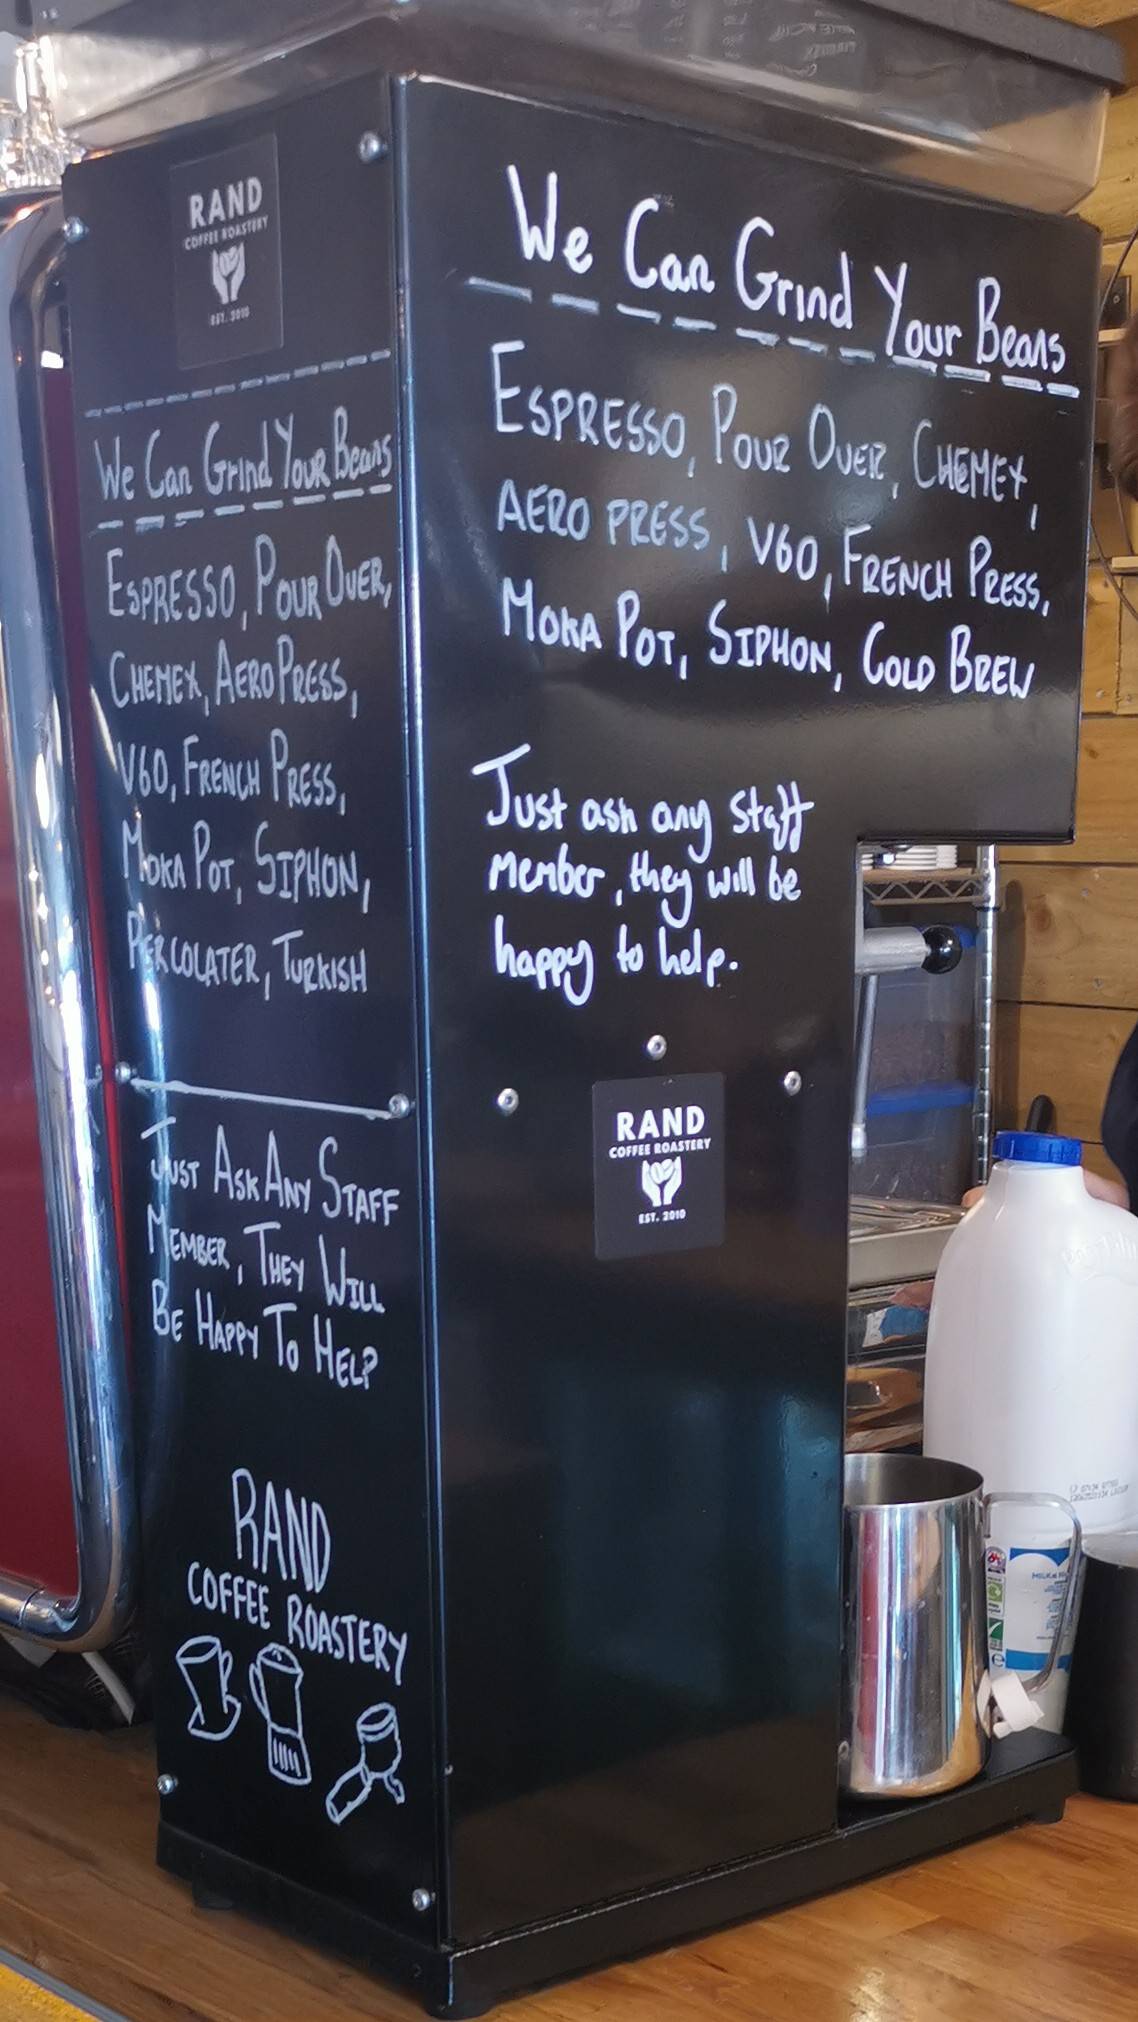 RAND
COFFEE ROASTERY
EST. 2010
We Can Grind Your Beans
ESPRESSO, POUR OVER,
CHEMEX, AEROPRESS,
V60, FRENCH PRESS,
MOKA POT, SIPHON,
PERCOLATER, TURKISH
JUST ASK ANY STAFF
MEMBER, THEY WILL
BE HAPPY TO HELP
RAND
COFFEE ROASTERY
We Can Grind Your Beans
ESPRESSO, POUR OVER, CHEMEX,
AERO PRESS, V60, FRENCH PRESS,
MOKA POT, SIPHON, COLD BREW
Just ask any staff
member, they will be
happy to help.
RAND
COFFEE ROASTERY
EST. 2010